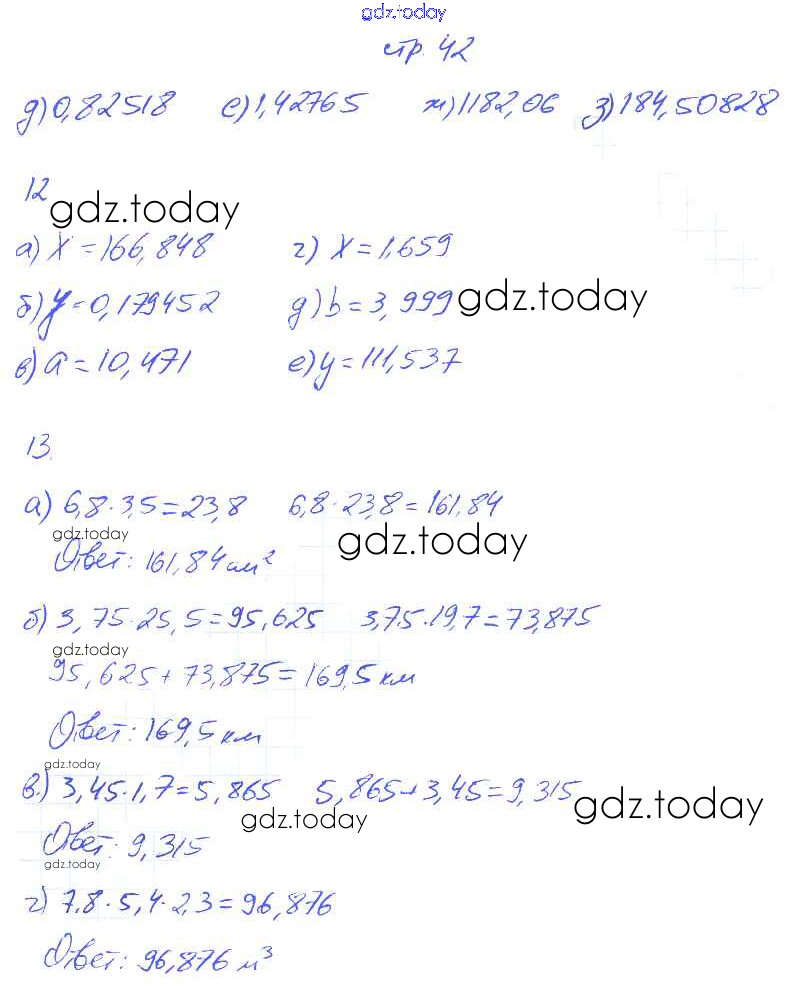 gdz.today
стр. 42
д) 0,82518 е) 1,42765 ж) 1182,06 з) 184,50828
12
gdz.today
а) x = 166,848 г) x = 1,659
б) y = 0,179452 д) b = 3,999 gdz.today
в) a = 10,471 е) y = 111,537
13.
а) 6,8 · 3,5 = 23,8 6,8 · 23,8 = 161,84
gdz.today gdz.today
Ответ: 161,84 см²
б) 3,75 · 25,5 = 95,625 3,75 · 19,7 = 73,875
gdz.today
95,625 + 73,875 = 169,5 км
Ответ: 169,5 км
gdz.today
в.) 3,45 · 1,7 = 5,865 5,865 + 3,45 = 9,315 gdz.today
gdz.today
Ответ: 9,315
gdz.today
г) 7,8 · 5,4 · 2,3 = 96,876
Ответ: 96,876 м³